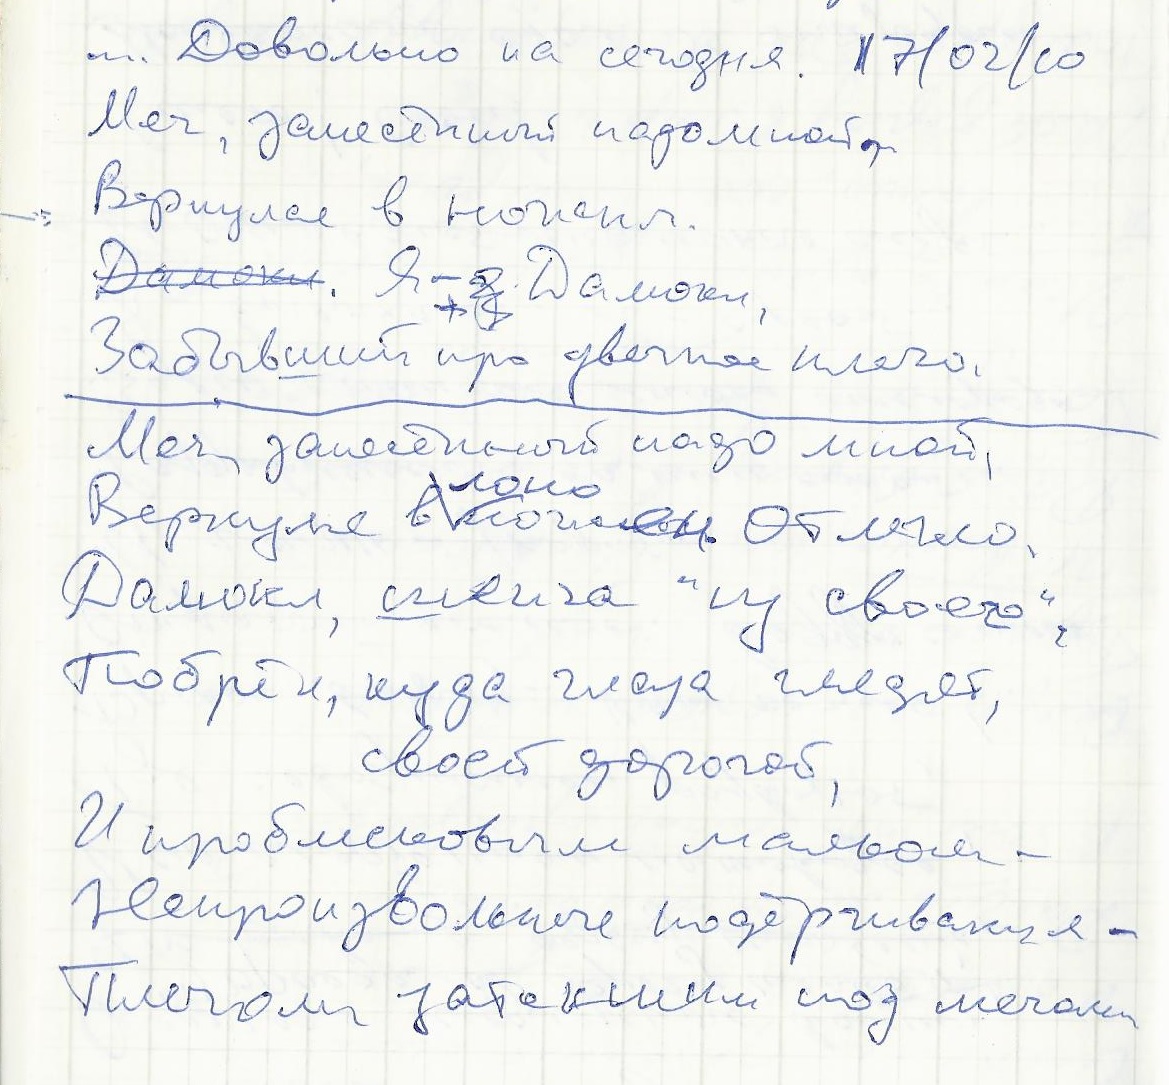 ... Довольно на сегодня. 17/02/10
Меч, занесённый надо мной,
Вернулся в ножны.
Дамокл. Я - Дамокл,
Забывший про двечное плечо.
Меч, занесённый надо мной,
лоно
Вернулся в ножен. Отлегло.
Дамокл, "из своего",
Побрёл, куда глаза глядят,
своей дорогой,
И проблесковым маяком -
Непроизвольное подёргивание -
Плечом, затёкшим под мечом